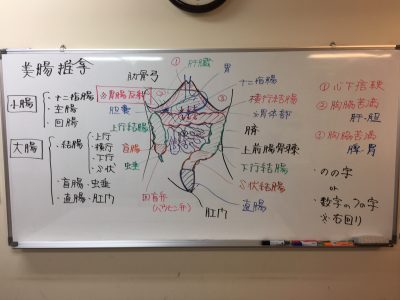 美腸推拿
小腸
・十二指腸
・空腸
・回腸
大腸
・結腸
・上行
・横行
・下行
・S状
・盲腸・虫垂
・直腸・肛門
肋骨弓
①肝臓
胃
②
②
胆嚢
上行結腸
盲腸
虫垂
回盲弁
(バウヒン弁)
肛門
十二指腸
横行結腸
臍
上前腸骨棘
下行結腸
S状結腸
直腸
①心下痞鞕
②胸脇苦満
肝・胆
②胸脇苦満
脾・胃
・のの字
or
・数字の「の字
※右回り